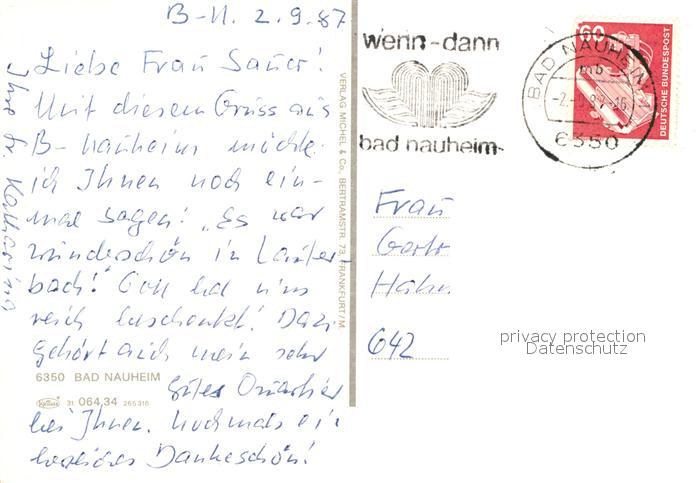 B-N. 2.9.87
Liebe Frau Sauer!
Mit diesem Gruss aus
B-Nauheim möchte
ich Ihnen noch ein-
mal sagen: „Es war
wunderschön in Lauter-
bach!" Gott hat uns
reich beschenkt! Dazu
gehört auch mein sehr
gutes Quartier
bei Ihnen. Nochmals ein
herzliches Dankeschön!
Ihre Sr. Katharina
6350 BAD NAUHEIM
31 064,34 265316
VERLAG MICHEL & Co., BERTRAMSTR. 73, FRANKFURT/M.
wenn-dann
bad nauheim
BAD NAUHEIM 1
-2.-9.87-16
6350
60
DEUTSCHE BUNDESPOST
Frau
Hahn
642
privacy protection
Datenschutz